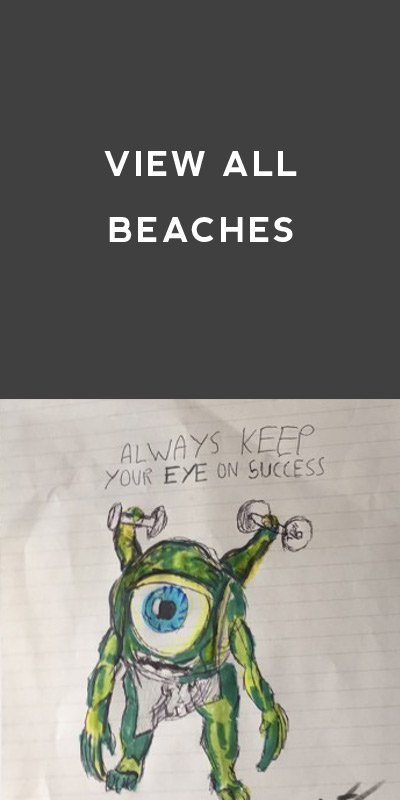 VIEW ALL
BEACHES
ALWAYS KEEP
YOUR EYE ON SUCCESS